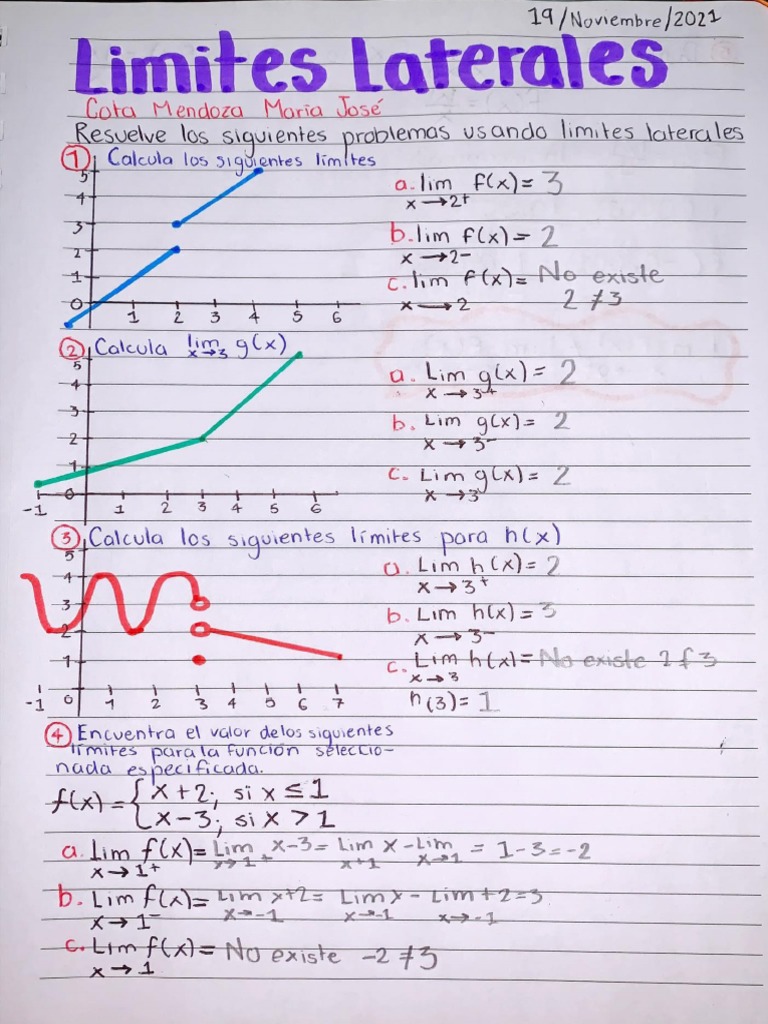 19/Noviembre/2021
Limites Laterales
Cota Mendoza Maria José
Resuelve los siguientes problemas usando limites laterales
1 Calcula los siguientes límites
5
4
3
2
1
0 1 2 3 4 5 6
a. lim f(x) = 3
x→2+
b. lim f(x) = 2
x→2-
c. lim f(x) = No existe
x→2 2≠3
2 Calcula lim g(x)
x→3
5
4
3
2
1
-1 0 1 2 3 4 5 6
a. Lim g(x) = 2
x→3+
b. Lim g(x) = 2
x→3-
c. Lim g(x) = 2
x→3
3 Calcula los siguientes límites para h(x)
5
4
3
2
1
-1 0 1 2 3 4 5 6 7
a. Lim h(x) = 2
x→3+
b. Lim h(x) = 3
x→3-
c. Lim h(x) = No existe 2≠3
x→3
h(3) = 1
4 Encuentra el valor de los siguientes
límites para la función seleccio-
nada especificada.
f(x) = { x+2; si x ≤ 1
x-3; si x > 1
a. Lim f(x) = Lim x-3 = Lim x - Lim = 1-3 = -2
x→1+ x→1+ x→1 x→1
b. Lim f(x) = Lim x+2 = Lim x - Lim +2 = 3
x→1- x→-1 x→-1 x→-1
c. Lim f(x) = No existe -2≠3
x→1